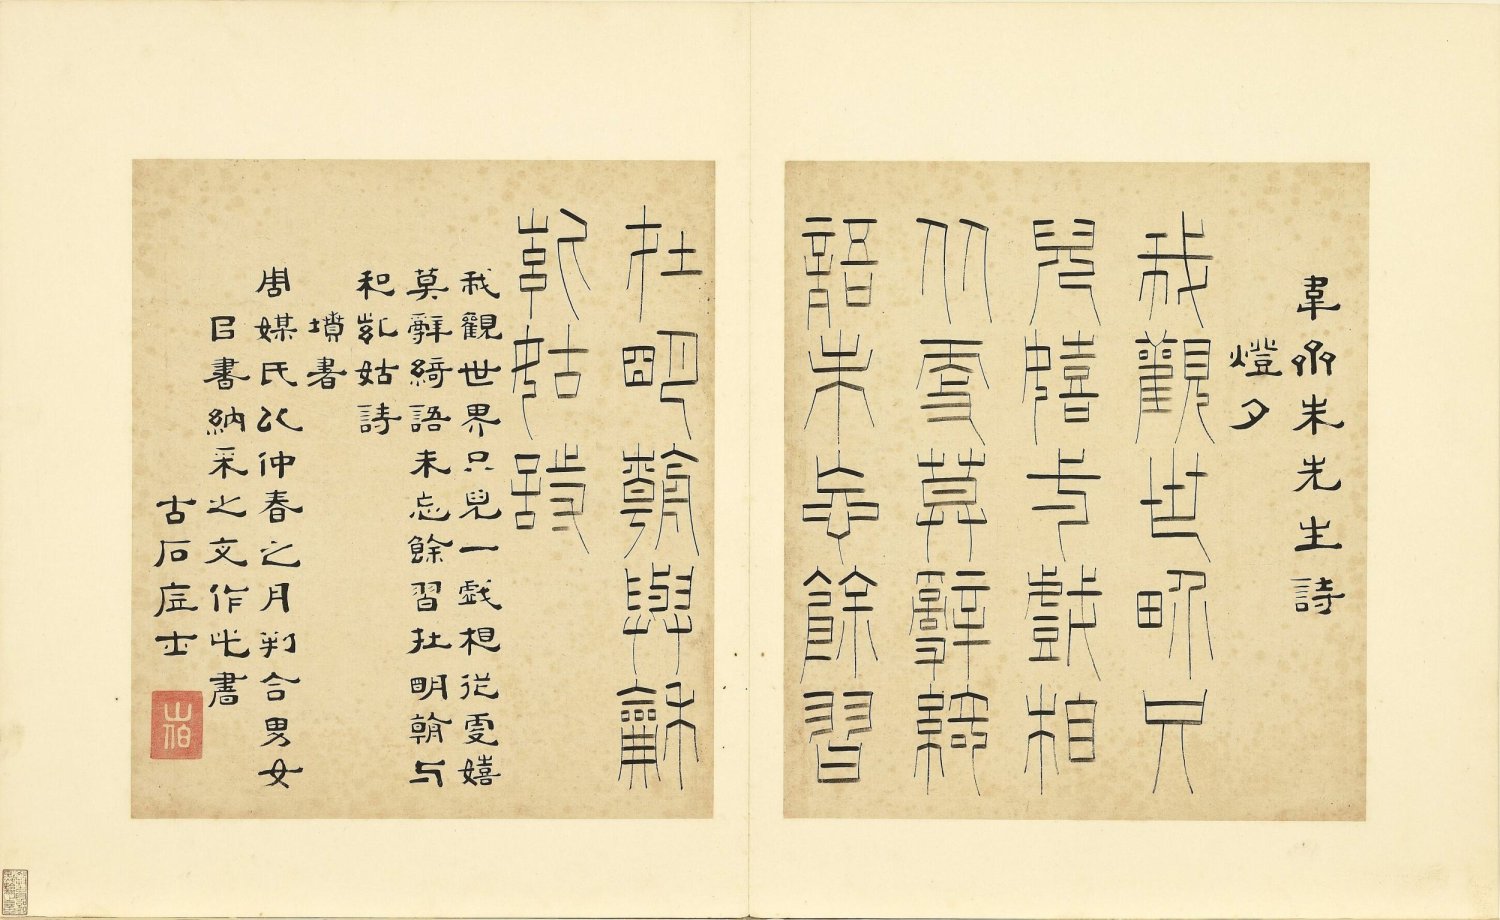 韋齋朱先生詩
燈夕
我觀世界只
兒嬉戲相
莫辭綺
語未忘餘習
明翰與龢
姑詩
我觀世界只兒一戲相從嬉
莫辭綺語未忘餘習明翰与
和姑詩
墳書
周媒氏以仲春之月判合男女
㠯書納采之文作此書
古石士